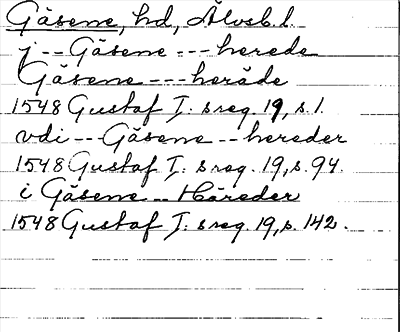 Gäsene, hd, Älvsb. l.
j -- Gäsene --- herede
Gäsene --- heräde
1548 Gustaf I: s reg. 19, s. 1.
vdi -- Gäsene -- hereder
1548 Gustaf I: s reg. 19, s. 94.
i Gäsene -- Häreder
1548 Gustaf I: s reg. 19, s. 142.